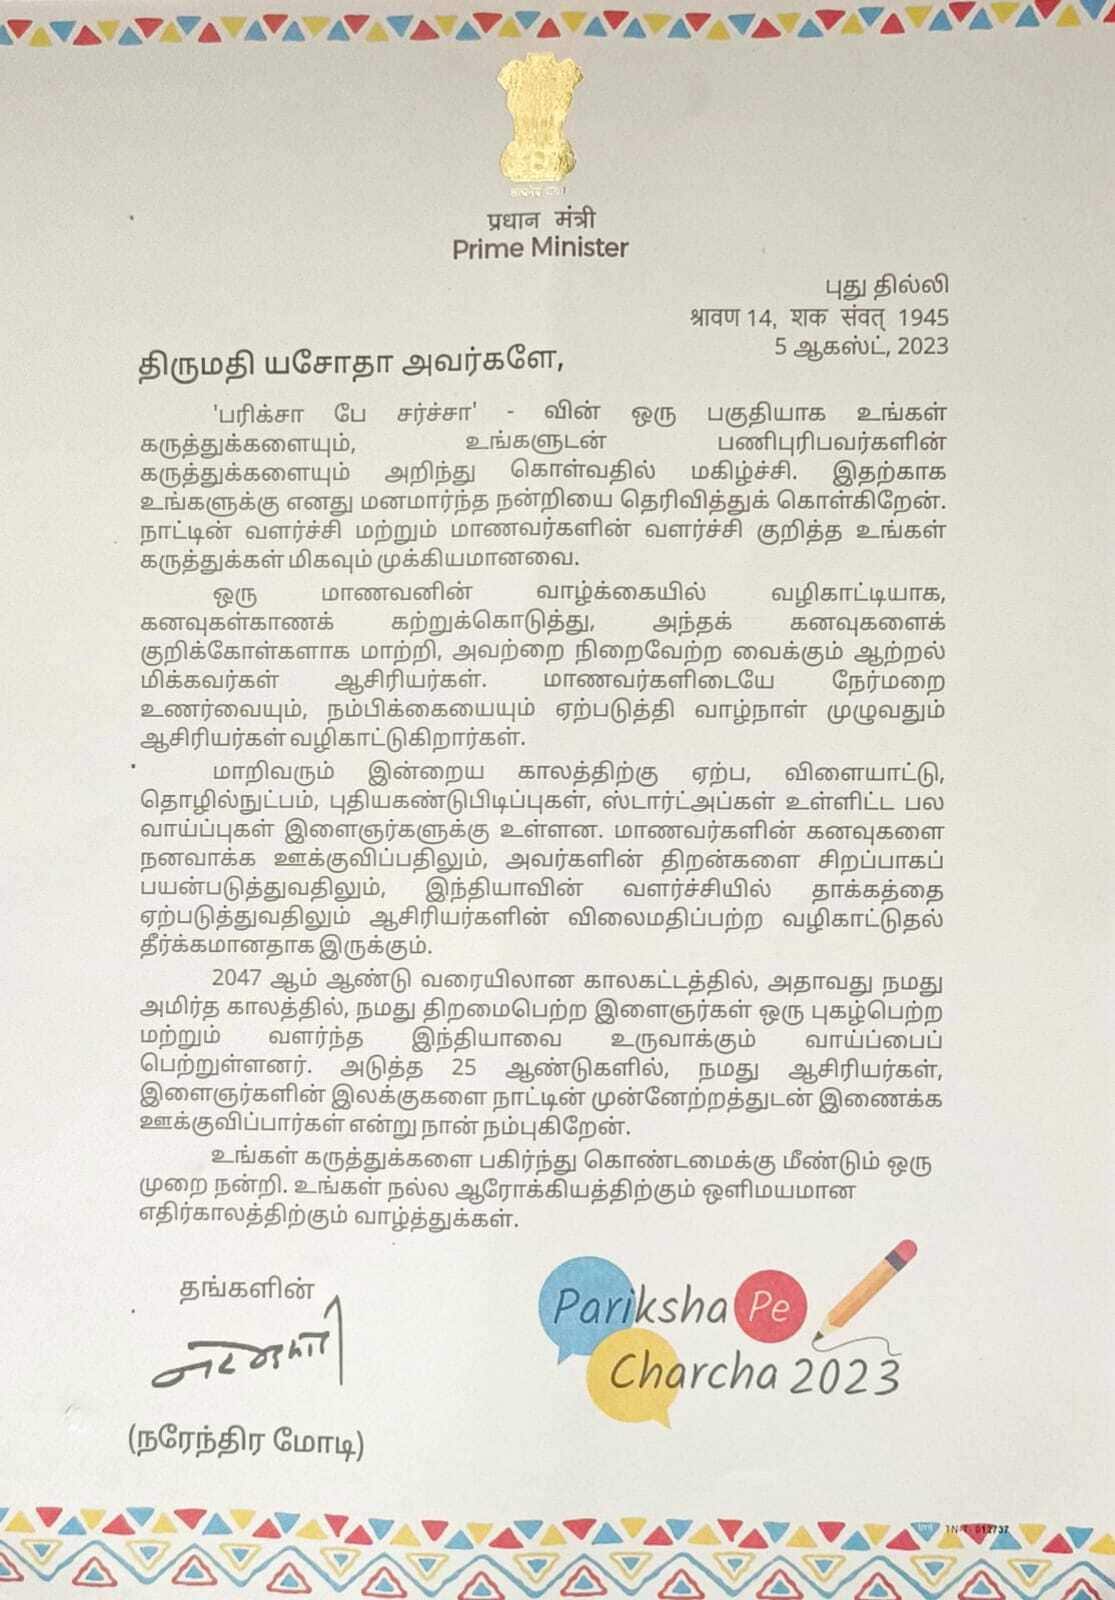 प्रधान मंत्री
Prime Minister
புது தில்லி
श्रावण 14, शक संवत् 1945
5 ஆகஸ்ட், 2023
திருமதி யசோதா அவர்களே,
'பரிக்சா பே சர்ச்சா' - வின் ஒரு பகுதியாக உங்கள்
கருத்துக்களையும், உங்களுடன் பணிபுரிபவர்களின்
கருத்துக்களையும் அறிந்து கொள்வதில் மகிழ்ச்சி. இதற்காக
உங்களுக்கு எனது மனமார்ந்த நன்றியை தெரிவித்துக் கொள்கிறேன்.
நாட்டின் வளர்ச்சி மற்றும் மாணவர்களின் வளர்ச்சி குறித்த உங்கள்
கருத்துக்கள் மிகவும் முக்கியமானவை.
ஒரு மாணவனின் வாழ்க்கையில் வழிகாட்டியாக,
கனவுகள்காணக் கற்றுக்கொடுத்து, அந்தக் கனவுகளைக்
குறிக்கோள்களாக மாற்றி, அவற்றை நிறைவேற்ற வைக்கும் ஆற்றல்
மிக்கவர்கள் ஆசிரியர்கள். மாணவர்களிடையே நேர்மறை
உணர்வையும், நம்பிக்கையையும் ஏற்படுத்தி வாழ்நாள் முழுவதும்
ஆசிரியர்கள் வழிகாட்டுகிறார்கள்.
மாறிவரும் இன்றைய காலத்திற்கு ஏற்ப, விளையாட்டு,
தொழில்நுட்பம், புதியகண்டுபிடிப்புகள், ஸ்டார்ட்அப்கள் உள்ளிட்ட பல
வாய்ப்புகள் இளைஞர்களுக்கு உள்ளன. மாணவர்களின் கனவுகளை
நனவாக்க ஊக்குவிப்பதிலும், அவர்களின் திறன்களை சிறப்பாகப்
பயன்படுத்துவதிலும், இந்தியாவின் வளர்ச்சியில் தாக்கத்தை
ஏற்படுத்துவதிலும் ஆசிரியர்களின் விலைமதிப்பற்ற வழிகாட்டுதல்
தீர்க்கமானதாக இருக்கும்.
2047 ஆம் ஆண்டு வரையிலான காலகட்டத்தில், அதாவது நமது
அமிர்த காலத்தில், நமது திறமைபெற்ற இளைஞர்கள் ஒரு புகழ்பெற்ற
மற்றும் வளர்ந்த இந்தியாவை உருவாக்கும் வாய்ப்பைப்
பெற்றுள்ளனர். அடுத்த 25 ஆண்டுகளில், நமது ஆசிரியர்கள்,
இளைஞர்களின் இலக்குகளை நாட்டின் முன்னேற்றத்துடன் இணைக்க
ஊக்குவிப்பார்கள் என்று நான் நம்புகிறேன்.
உங்கள் கருத்துக்களை பகிர்ந்து கொண்டமைக்கு மீண்டும் ஒரு
முறை நன்றி. உங்கள் நல்ல ஆரோக்கியத்திற்கும் ஒளிமயமான
எதிர்காலத்திற்கும் வாழ்த்துக்கள்.
தங்களின்
(நரேந்திர மோடி)
Pariksha Pe
Charcha 2023